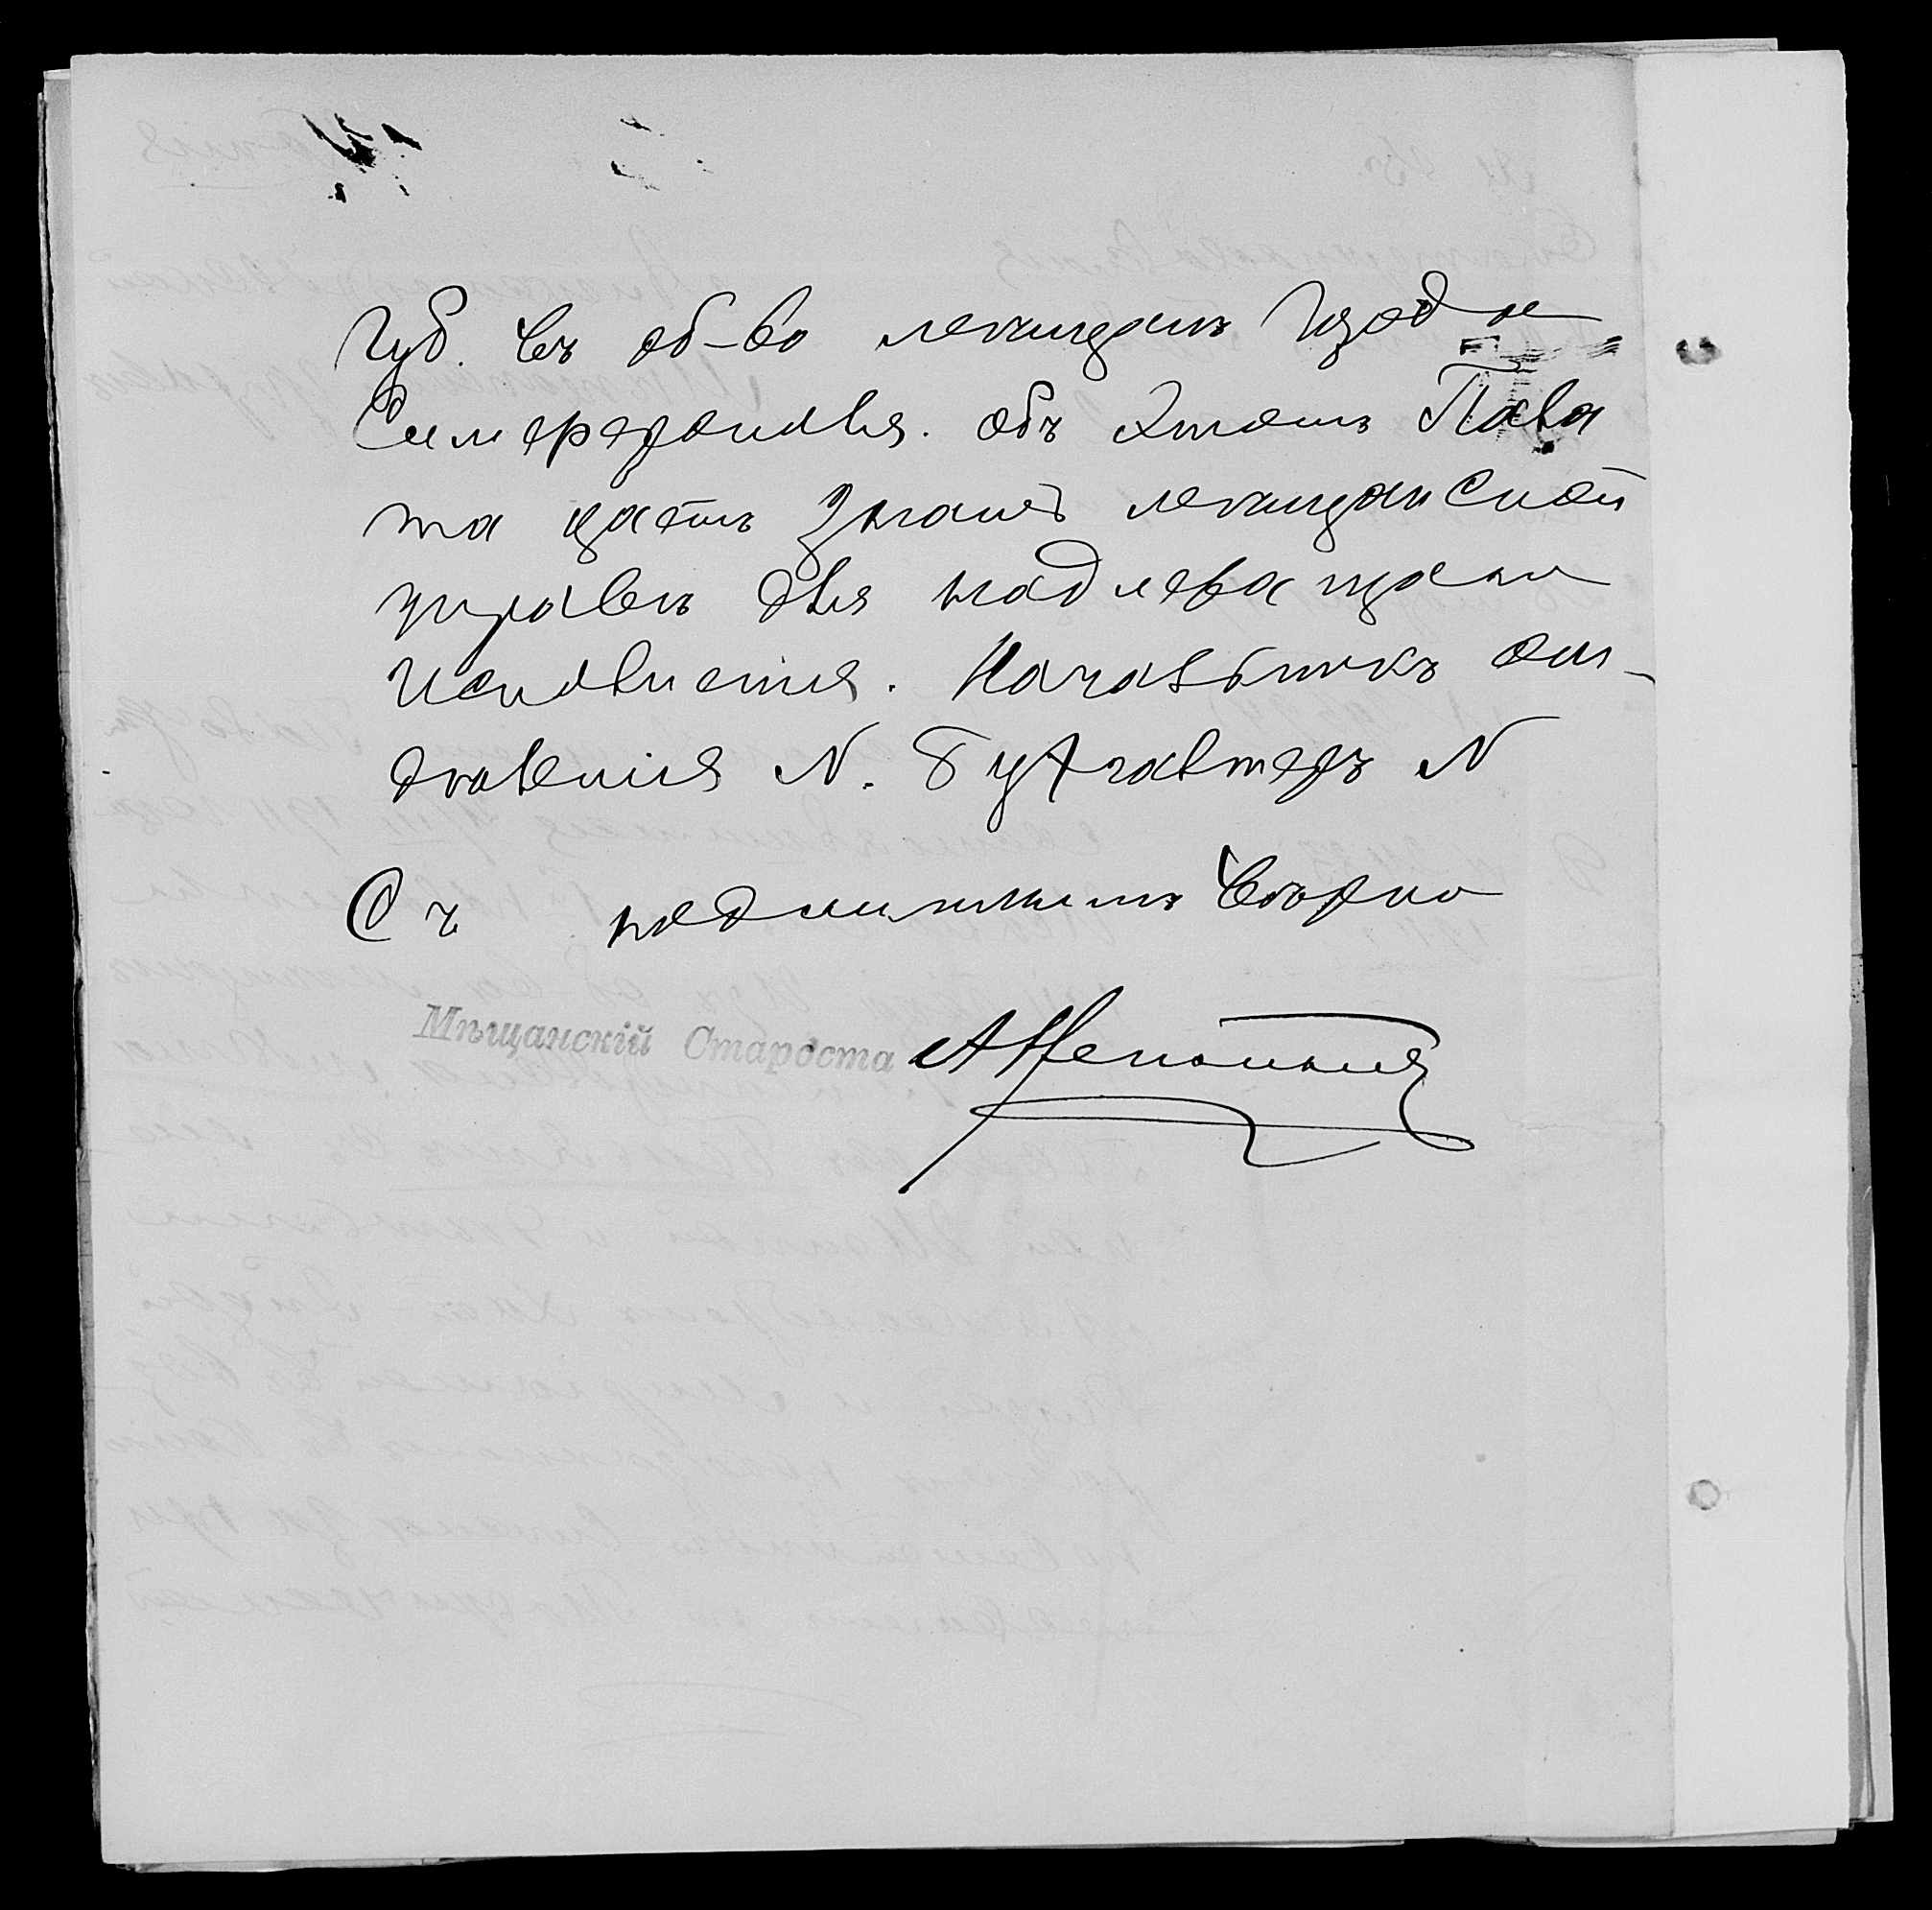 Губ. въ об-во мѣщанъ города
Симферополя. Объ этомъ Пала
та даетъ знать мѣщанской
управѣ для надлежащаго
исполненія. Начальникъ от-
дѣленія N. Бухгалтеръ N
Съ подлиннымъ вѣрно
Мѣщанскій Староста